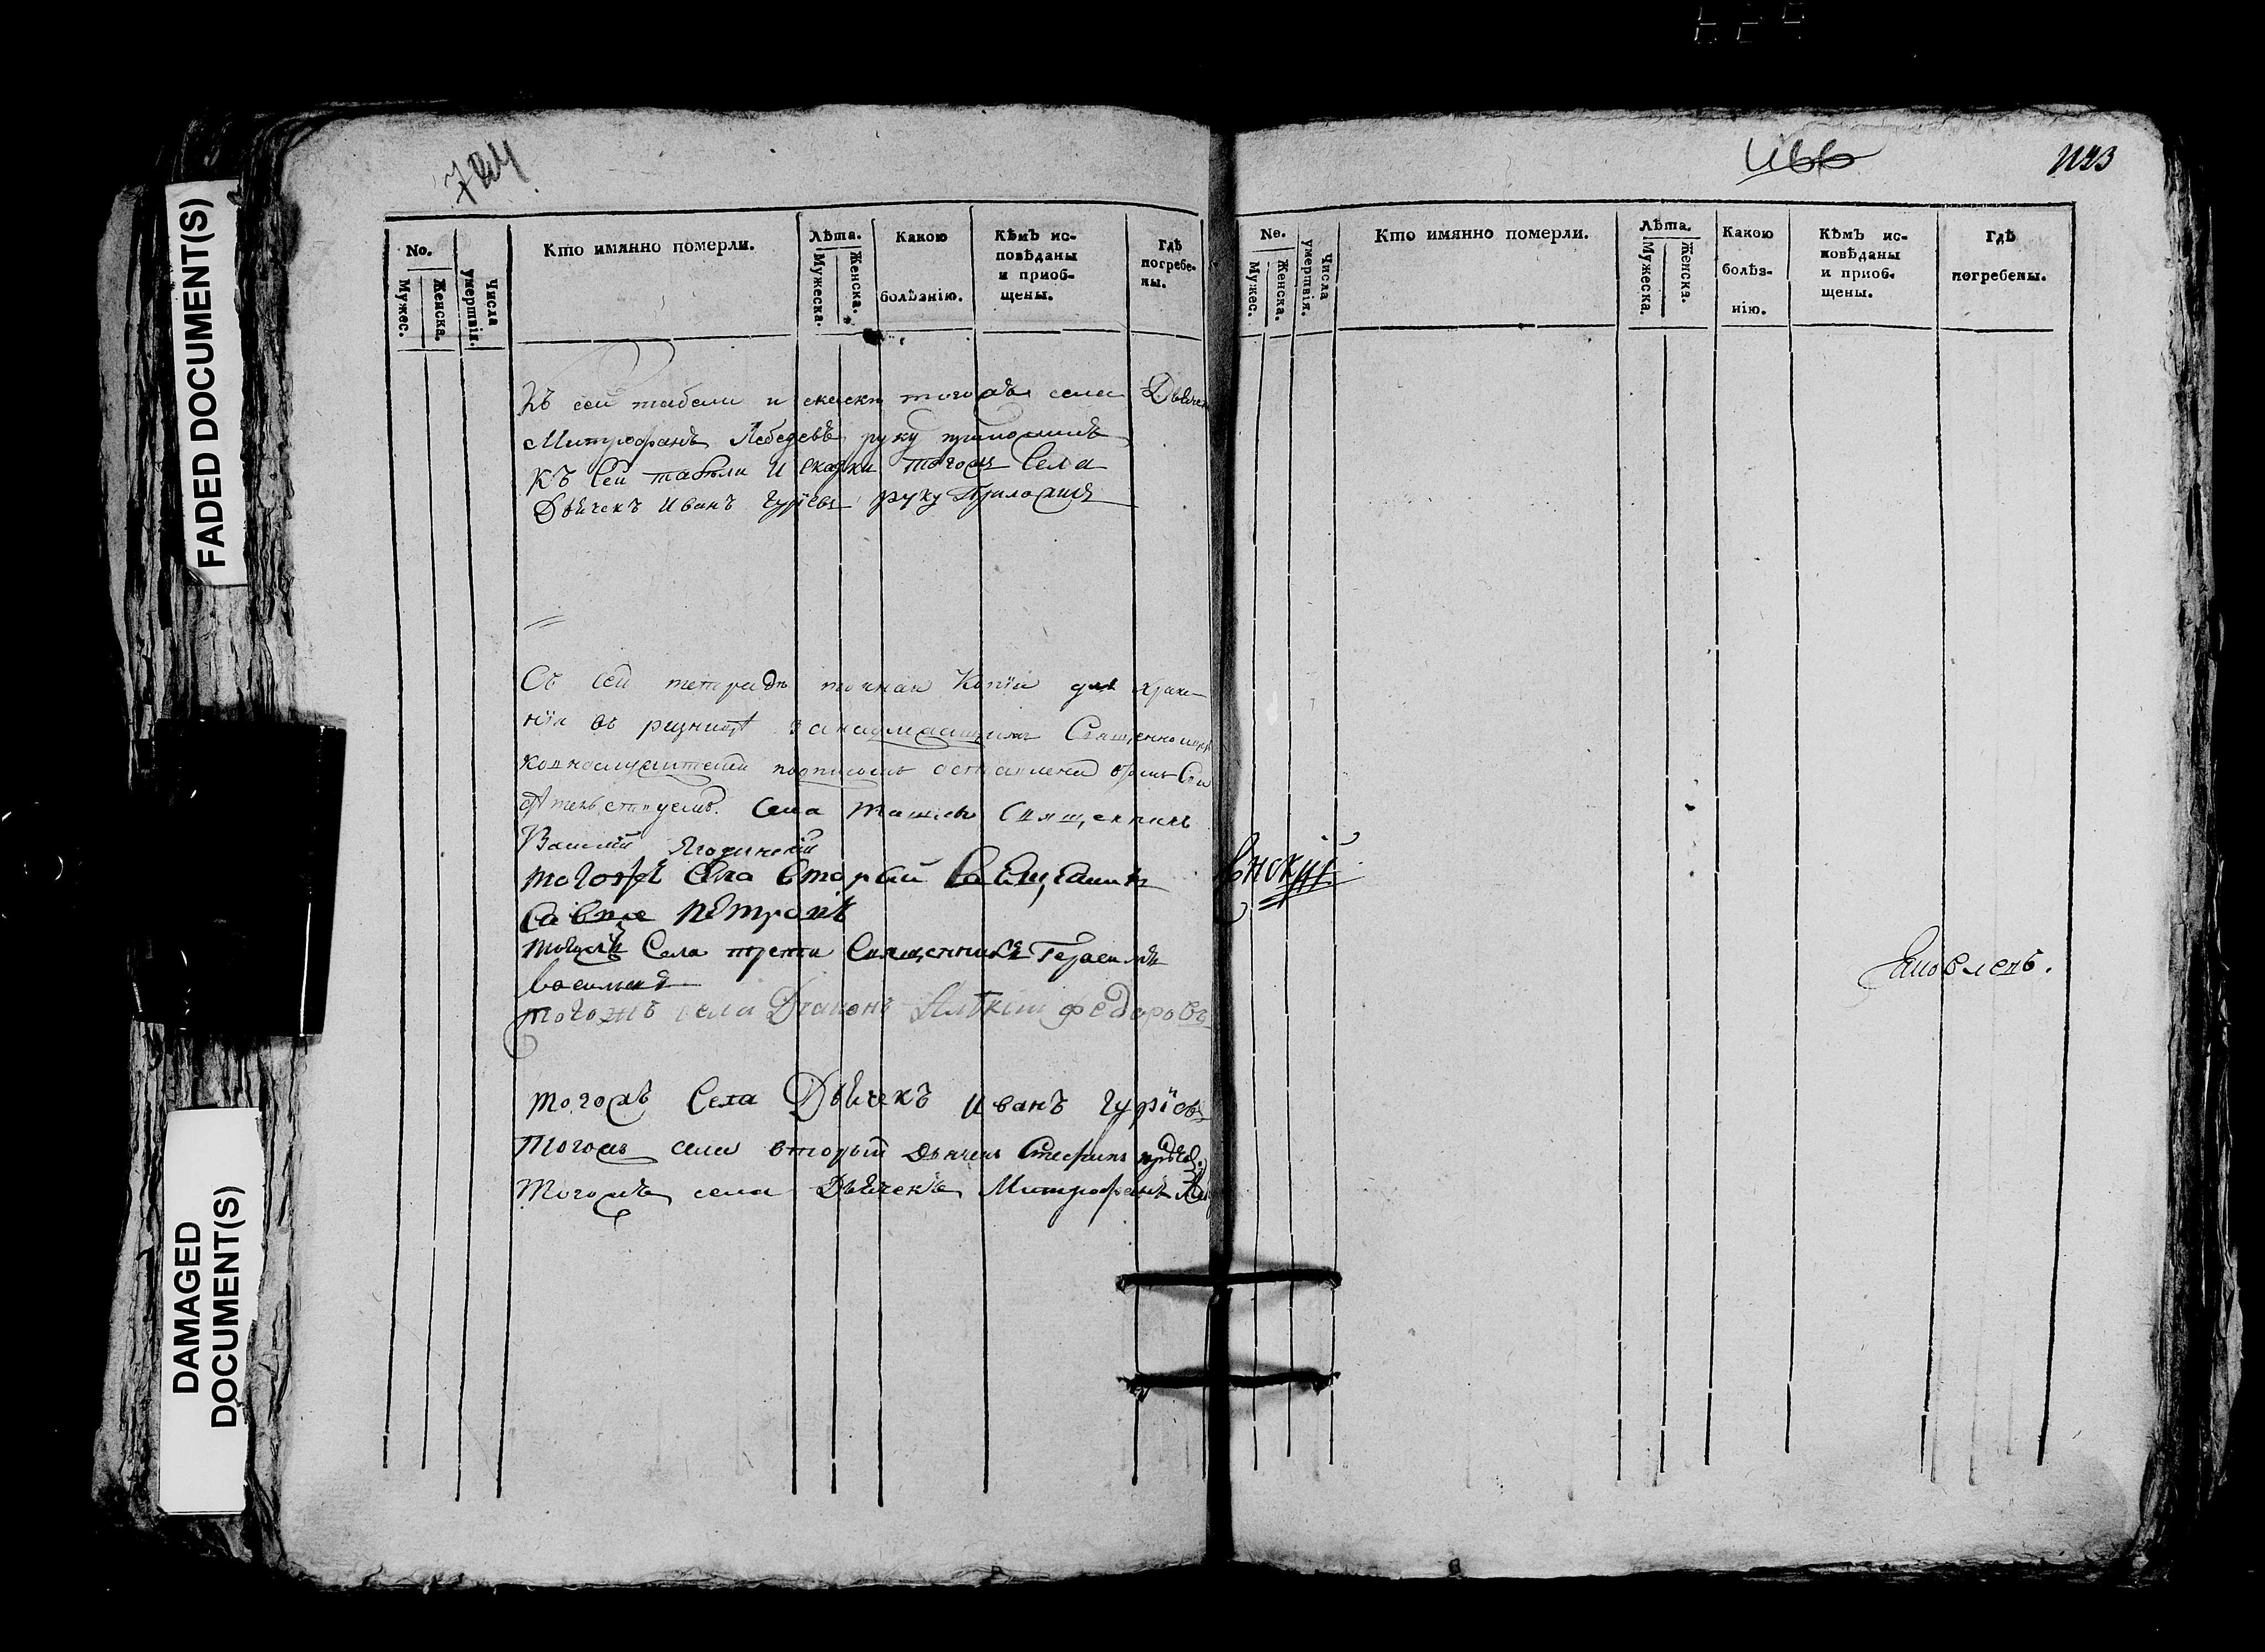 FADED DOCUMENT(S)
DAMAGED
DOCUMENT(S)
724
No.
Мужес.
Женска.
Числа
умертвія.
Кто имянно померли.
Лѣта.
Мужеска.
Женска.
Какою
болѣзнію.
Кѣмъ ис-
повѣданы
и приоб-
щены.
Гдѣ
погребе-
ны.
Къ сей табели и сказки тогожъ села Дьяче
Митрофанъ Лебедевъ руку приложилъ
Къ Сей табѣли И сказки тогожъ Села
Дьячекъ Иванъ Гуріевъ руку Приложилъ
Съ сей тетради точная Копія для хране-
нія въ ризницѣ за
подписомъ оставлена
Села Священникъ
Василій Ягодинскій
тогожъ Села вторый Священникъ
Савва Петровъ
тогожъ Села трети Священникъ Герасимъ
Васильевъ
тогожъ села Диаконъ Алѣксій Федоровъ
тогожъ Села Дьячекъ Иванъ Гуріевъ
Тогожъ села вторый Дьячекъ Стефанъ
Тогожъ села Дьячекъ Митрофанъ
1123
No.
Мужес.
Женска.
Числа
умертвія.
Кто имянно померли.
Лѣта.
Мужеска.
Женска.
Какою
болѣз-
нію.
Кѣмъ ис-
повѣданы
и приоб-
щены.
Гдѣ
погребены.
Яковлевъ.